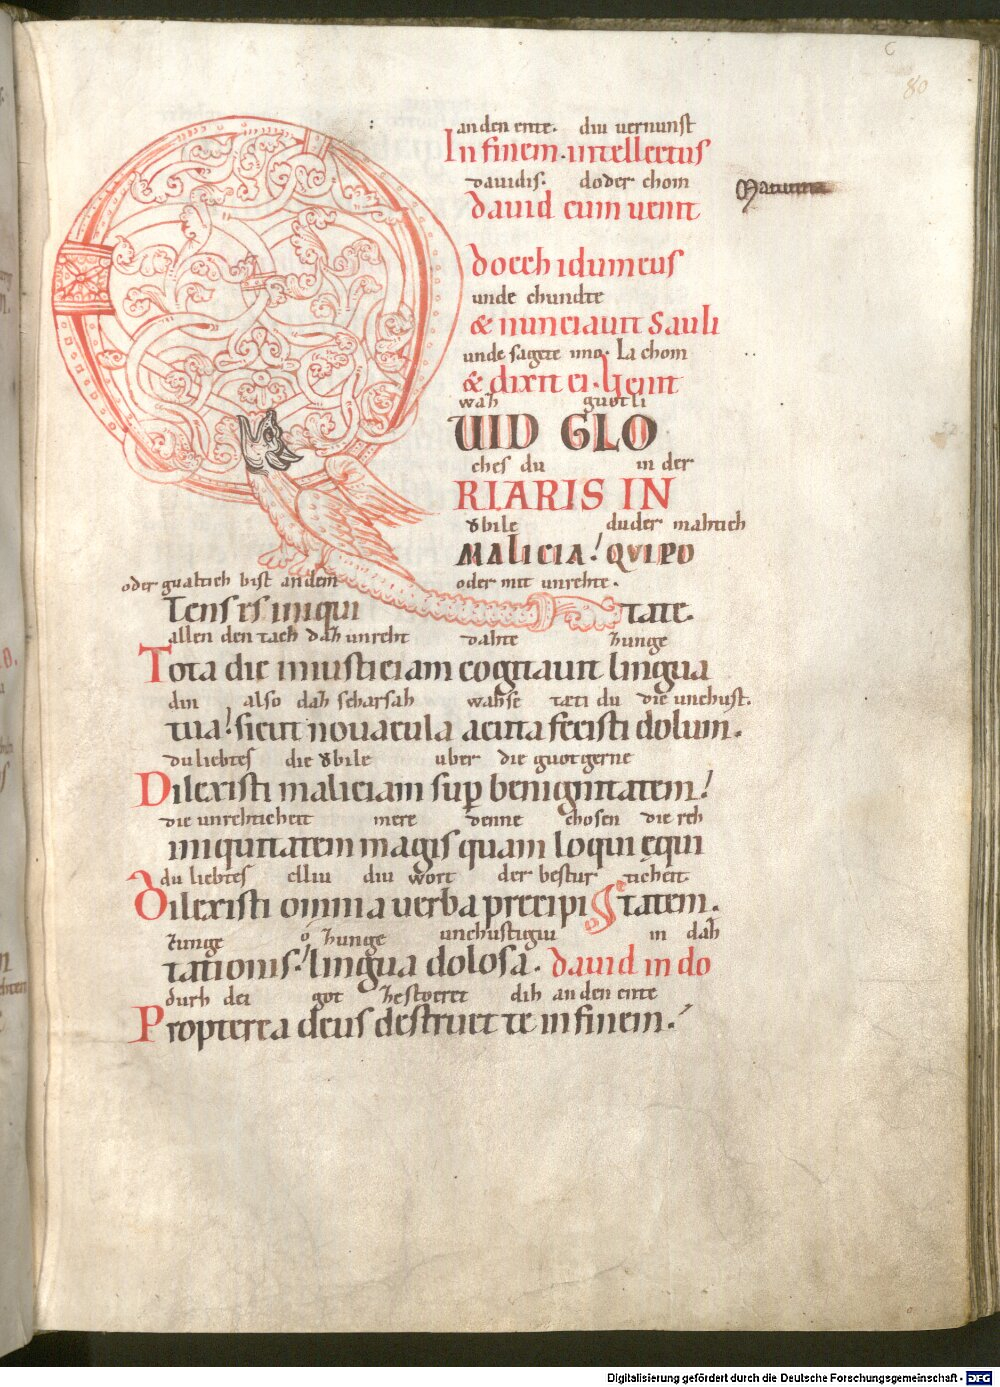 80
an den ente. diu uernunst
In finem. intellectus
dauidis. do der chom
dauid cum uenit
doech idumeus
unde chundte
& nunciauit Sauli
unde sagete imo. La chom
& dixit ei. Uenit
wah guotli
QUID GLO
ches du in der
RIARIS IN
ubile du der mahtich
MALICIA! QUI PO
oder gualtich bist an dem oder mit unrehte.
TENS ES iniqui tate.
allen den tach dah unreht dahte zunge
Tota die iniusticiam cogitauit lingua
din also dah scharsah wahse tæti du die unchust.
tua! sicut nouacula acuta fecisti dolum.
du liebtes die ubile uber die guotgerne
Dilexisti maliciam sup benignitatem!
die unrehticheit mere denne chosen die reh
iniquitatem magis quam loqui equi
du liebtes elliu diu wort der bestur ticheit
Dilexisti omnia uerba precipi tatem.
zunge o zunge unchustigiu in dah
tationis! lingua dolosa. dauid in do
durh dei got zestoeret dih an den ente
Propterea deus destruet te in finem.
Digitalisierung gefördert durch die Deutsche Forschungsgemeinschaft - DFG